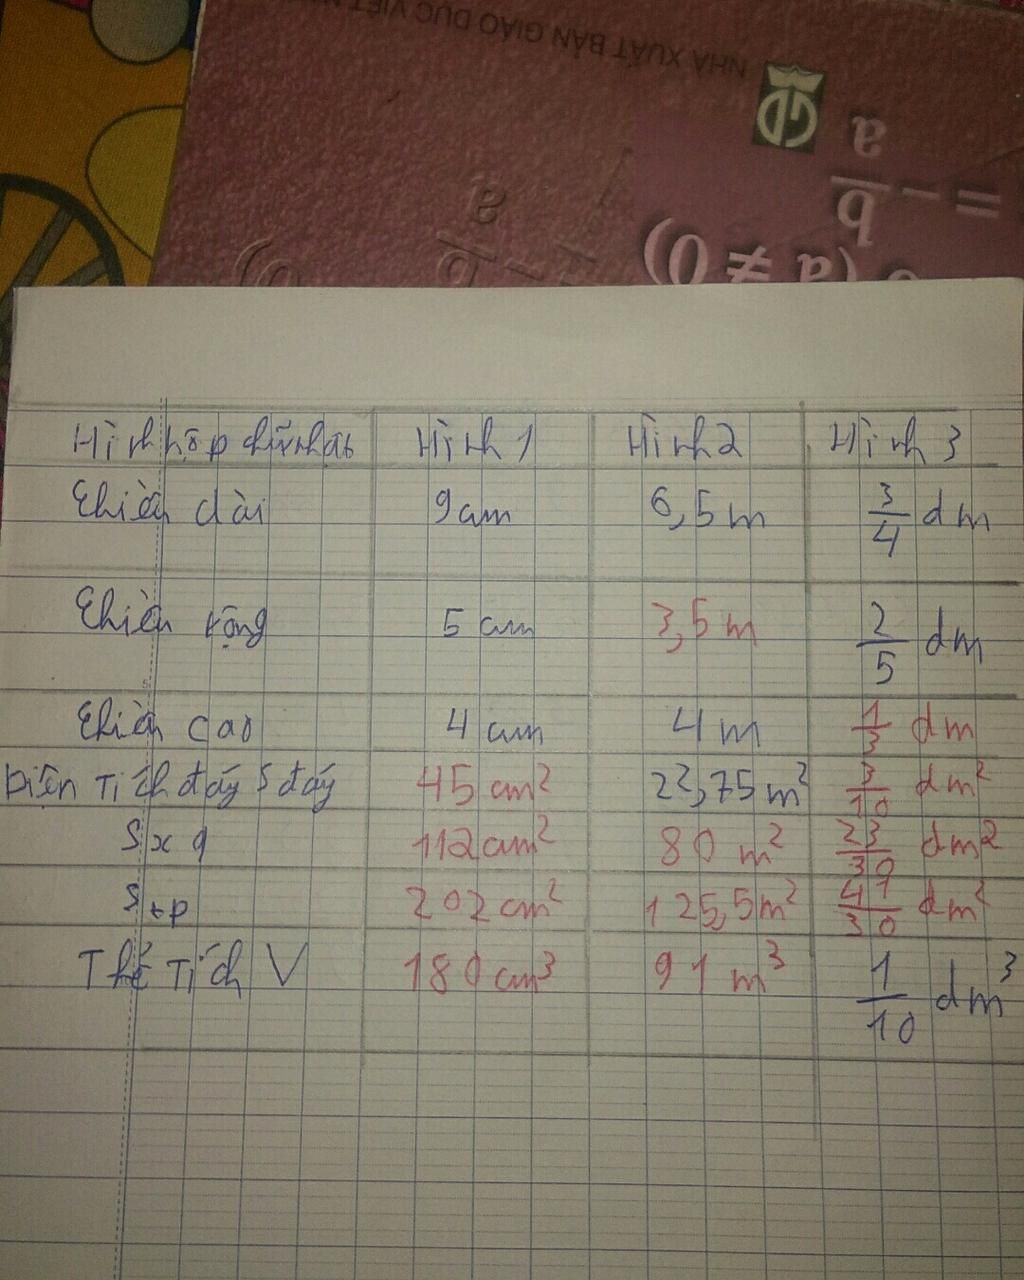 NHÀ XUẤT BẢN GIÁO DỤC VIỆT
GD
= - b/a
(a ≠ 0)
Hình hộp chữ nhật Hình 1 Hình 2 Hình 3
Chiều dài 9cm 6,5m 3/4 dm
Chiều rộng 5 cm 3,5m 2/5 dm
Chiều cao 4 cm 4m 1/3 dm
Diện Tích đáy S đáy 45 cm² 22,75m² 3/10 dm²
Sxq 112cm² 80 m² 23/30 dm²
Stp 202cm² 125,5m² 41/30 dm²
Thể Tích V 180cm³ 91 m³ 1/10 dm³